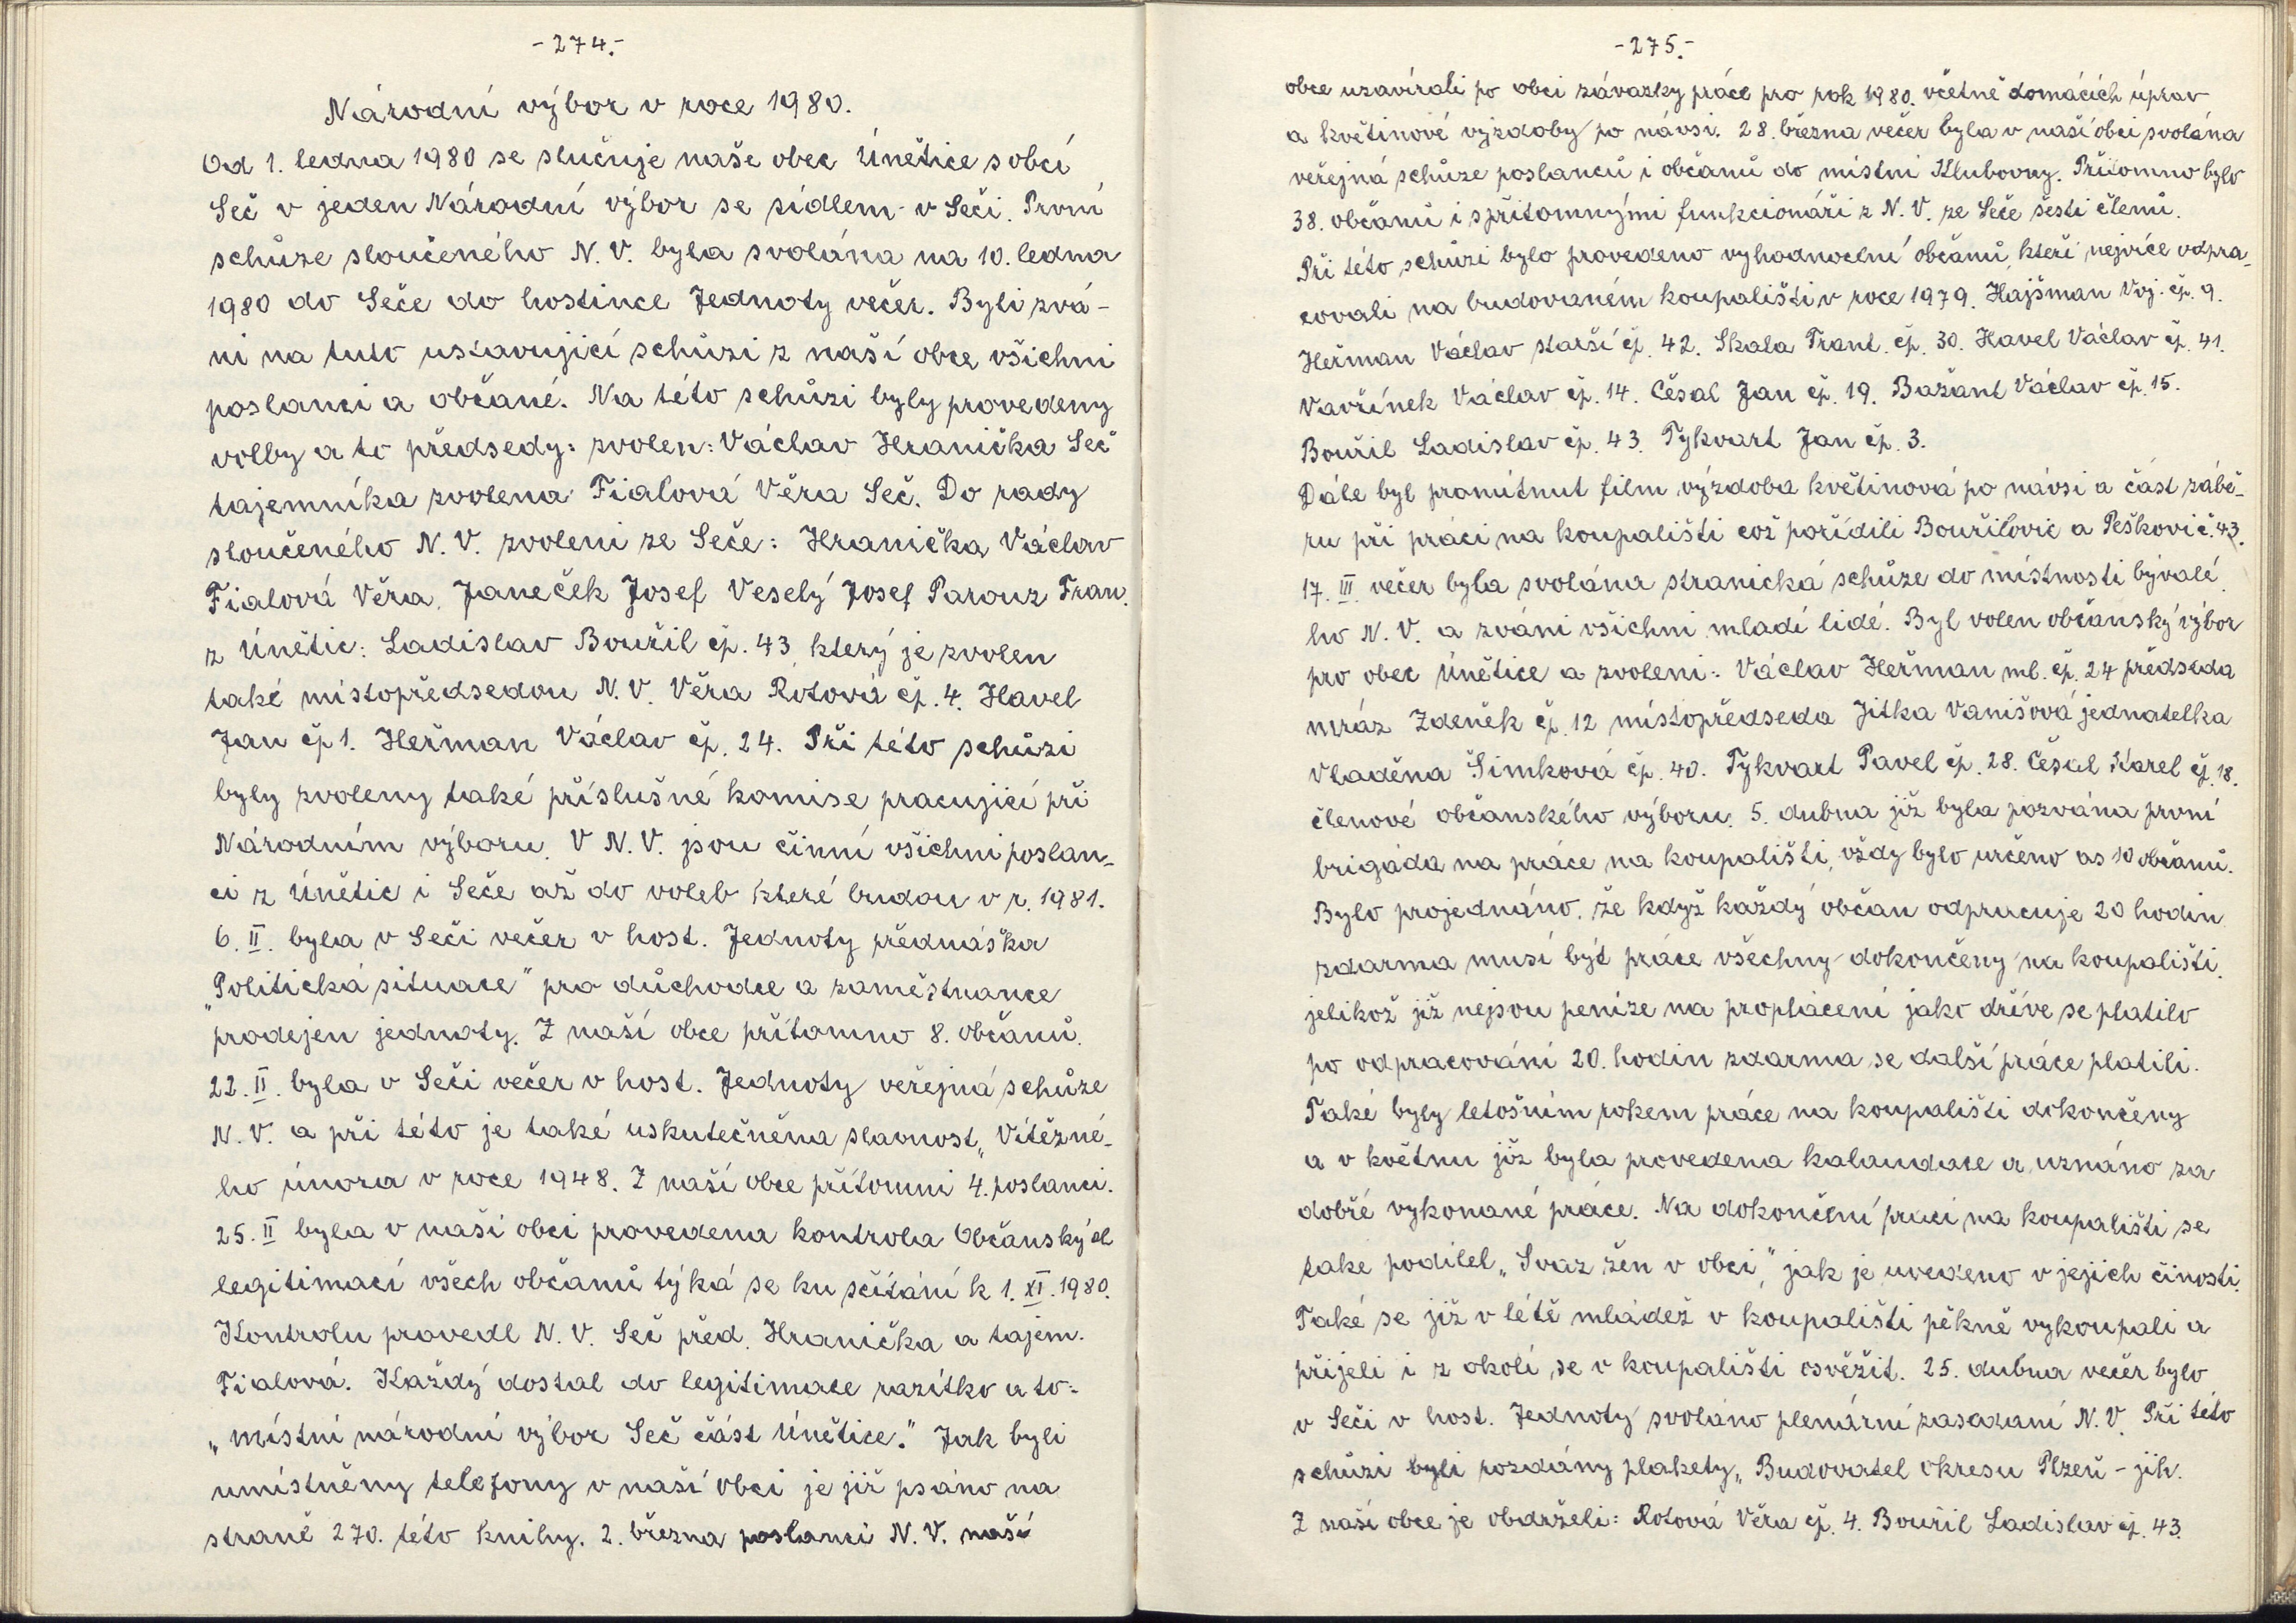 -274.-
Národní výbor v roce 1980.
Od 1. ledna 1980 se slučuje naše obec Únětice s obcí
Seč v jeden Národní výbor se sídlem v Seči. První
schůze sloučeného N. V. byla svolána na 10. ledna
1980 do Seče do hostince Jednoty večer. Byli zvá-
ni na tuto ustavující schůzi z naší obce všichni
poslanci a občané. Na této schůzi byly provedeny
volby a to předsedy: zvolen: Václav Hranička Seč
tajemníka zvolena Fialová Věra Seč. Do rady
sloučeného N. V. zvoleni ze Seče: Hranička Václav
Fialová Věra, Janeček Josef Veselý Josef Parouz Fran.
z Únětic: Ladislav Bouřil čp. 43, který je zvolen
také místopředsedou N. V. Věra Rotová čp. 4. Havel
Jan čp 1. Heřman Václav čp. 24. Při této schůzi
byly zvoleny také příslušné komise pracující při
Národním výboru. V N. V. jsou činní všichni poslan-
ci z Únětic i Seče až do voleb které budou v r. 1981.
6. II. byla v Seči večer v host. Jednoty přednáška
„Politická situace" pro důchodce a zaměstnance
prodejen jednoty. Z naší obce přítomno 8. občanů.
22. II. byla v Seči večer v host. Jednoty veřejná schůze
N. V. a při této je také uskutečněna slavnost „Vítězné-
ho února v roce 1948. Z naší obce přítomni 4. poslanci.
25. II byla v naší obci provedena kontrola Občanských
legitimací všech občanů týká se ku sčítání k 1. XI. 1980.
Kontrolu provedl N. V. Seč před. Hranička a tajem.
Fialová. Každý dostal do legitimace razítko a to:
„místní národní výbor Seč část Únětice." Jak byli
umístněny telefony v naší obci je již psáno na
straně 270. této knihy. 2. března poslanci N. V. naší
-275.-
obce uzavírali po obci závazky práce pro rok 1980. včetně domácích úprav
a květinové výzdoby po návsi. 28. března večer byla v naší obci svolána
veřejná schůze poslanců i občanů do místní Klubovny. Přítomno bylo
38. občanů i s přítomnými funkcionáři z N. V. ze Seče šesti členů.
Při této schůzi bylo provedeno vyhodnocení občanů, kteří nejvíce odpra-
covali na budovaném koupališti v roce 1979. Hajšman Voj. čp. 9.
Heřman Václav starší čp. 42. Skala Frant. čp. 30. Havel Václav čp. 41.
Vavřínek Václav čp. 14. Česal Jan čp. 19. Bažant Václav čp. 15.
Bouřil Ladislav čp. 43. Tykvart Jan čp. 3.
Dále byl promítnut film výzdoba květinová po návsi a část zábě-
ru při práci na koupališti což pořídili Bouřilovic a Peškovi č. 43.
17. III. večer byla svolána stranická schůze do místnosti bývalé
ho N. V. a zváni všichni mladí lidé. Byl volen občanský výbor
pro obec Únětice a zvoleni: Václav Heřman ml. čp. 24 předseda
mráz Zdeněk čp. 12 místopředseda Jitka Vanišová jednatelka
Vladěna Šimková čp. 40. Tykvart Pavel čp. 28. Česal Karel čp. 18.
členové občanského výboru. 5. dubna již byla pozvána první
brigáda na práce na koupališti, vždy bylo určeno as 10 občanů.
Bylo projednáno, že když každý občan odpracuje 20 hodin
zdarma musí být práce všechny dokončeny na koupališti,
jelikož již nejsou peníze na proplácení jako dříve se platilo
po odpracování 20. hodin zdarma se další práce platili.
Také byly letošním rokem práce na koupališti dokončeny
a v květnu již byla provedena kalaudace a uznáno za
dobře vykonané práce. Na dokončení prací na koupališti se
take podílel „Svaz žen v obci", jak je uvedeno v jejich činosti.
Také se již v létě mládež v koupališti pěkně vykoupali a
přijeli i z okolí se v koupališti osvěžit. 25. dubna večer bylo
v Seči v host. Jednoty svoláno plenární zasedaní N. V. Při této
schůzi byli rozdány plakety „Budovatel okresu Plzeň - jih.
Z naší obce je obdrželi: Rotová Věra čp. 4. Bouřil Ladislav čp. 43.